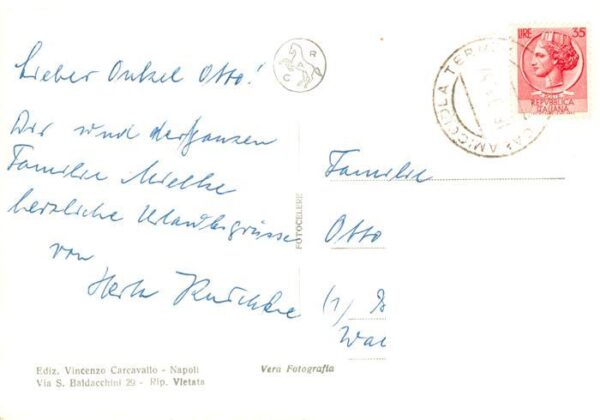 Lieber Onkel Otto!
Dir und der ganzen
Familie Mielke
herzliche Urlaubsgrüsse
von
CARP
FOTOCELERE
CASAMICCIOLA TERME
LIRE 35
REPVBBLICA
ITALIANA
Familie
Otto
(1)
Ediz. Vincenzo Carcavallo - Napoli
Via S. Baldacchini 29 - Rip. Vietata
Vera Fotografia